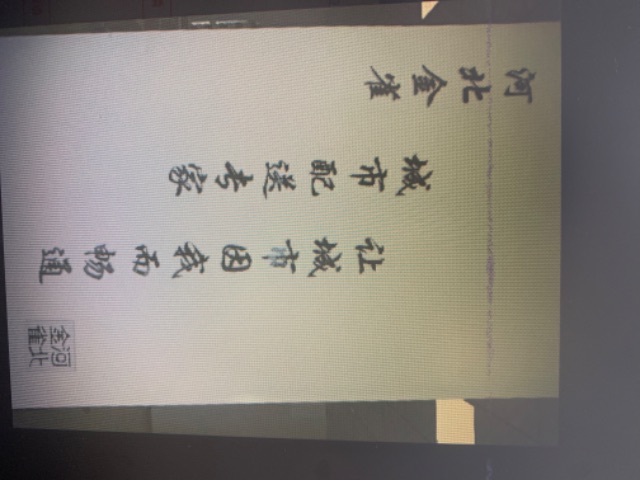 河北金雀
城市配送专家
让城市因我而畅通
河北金雀